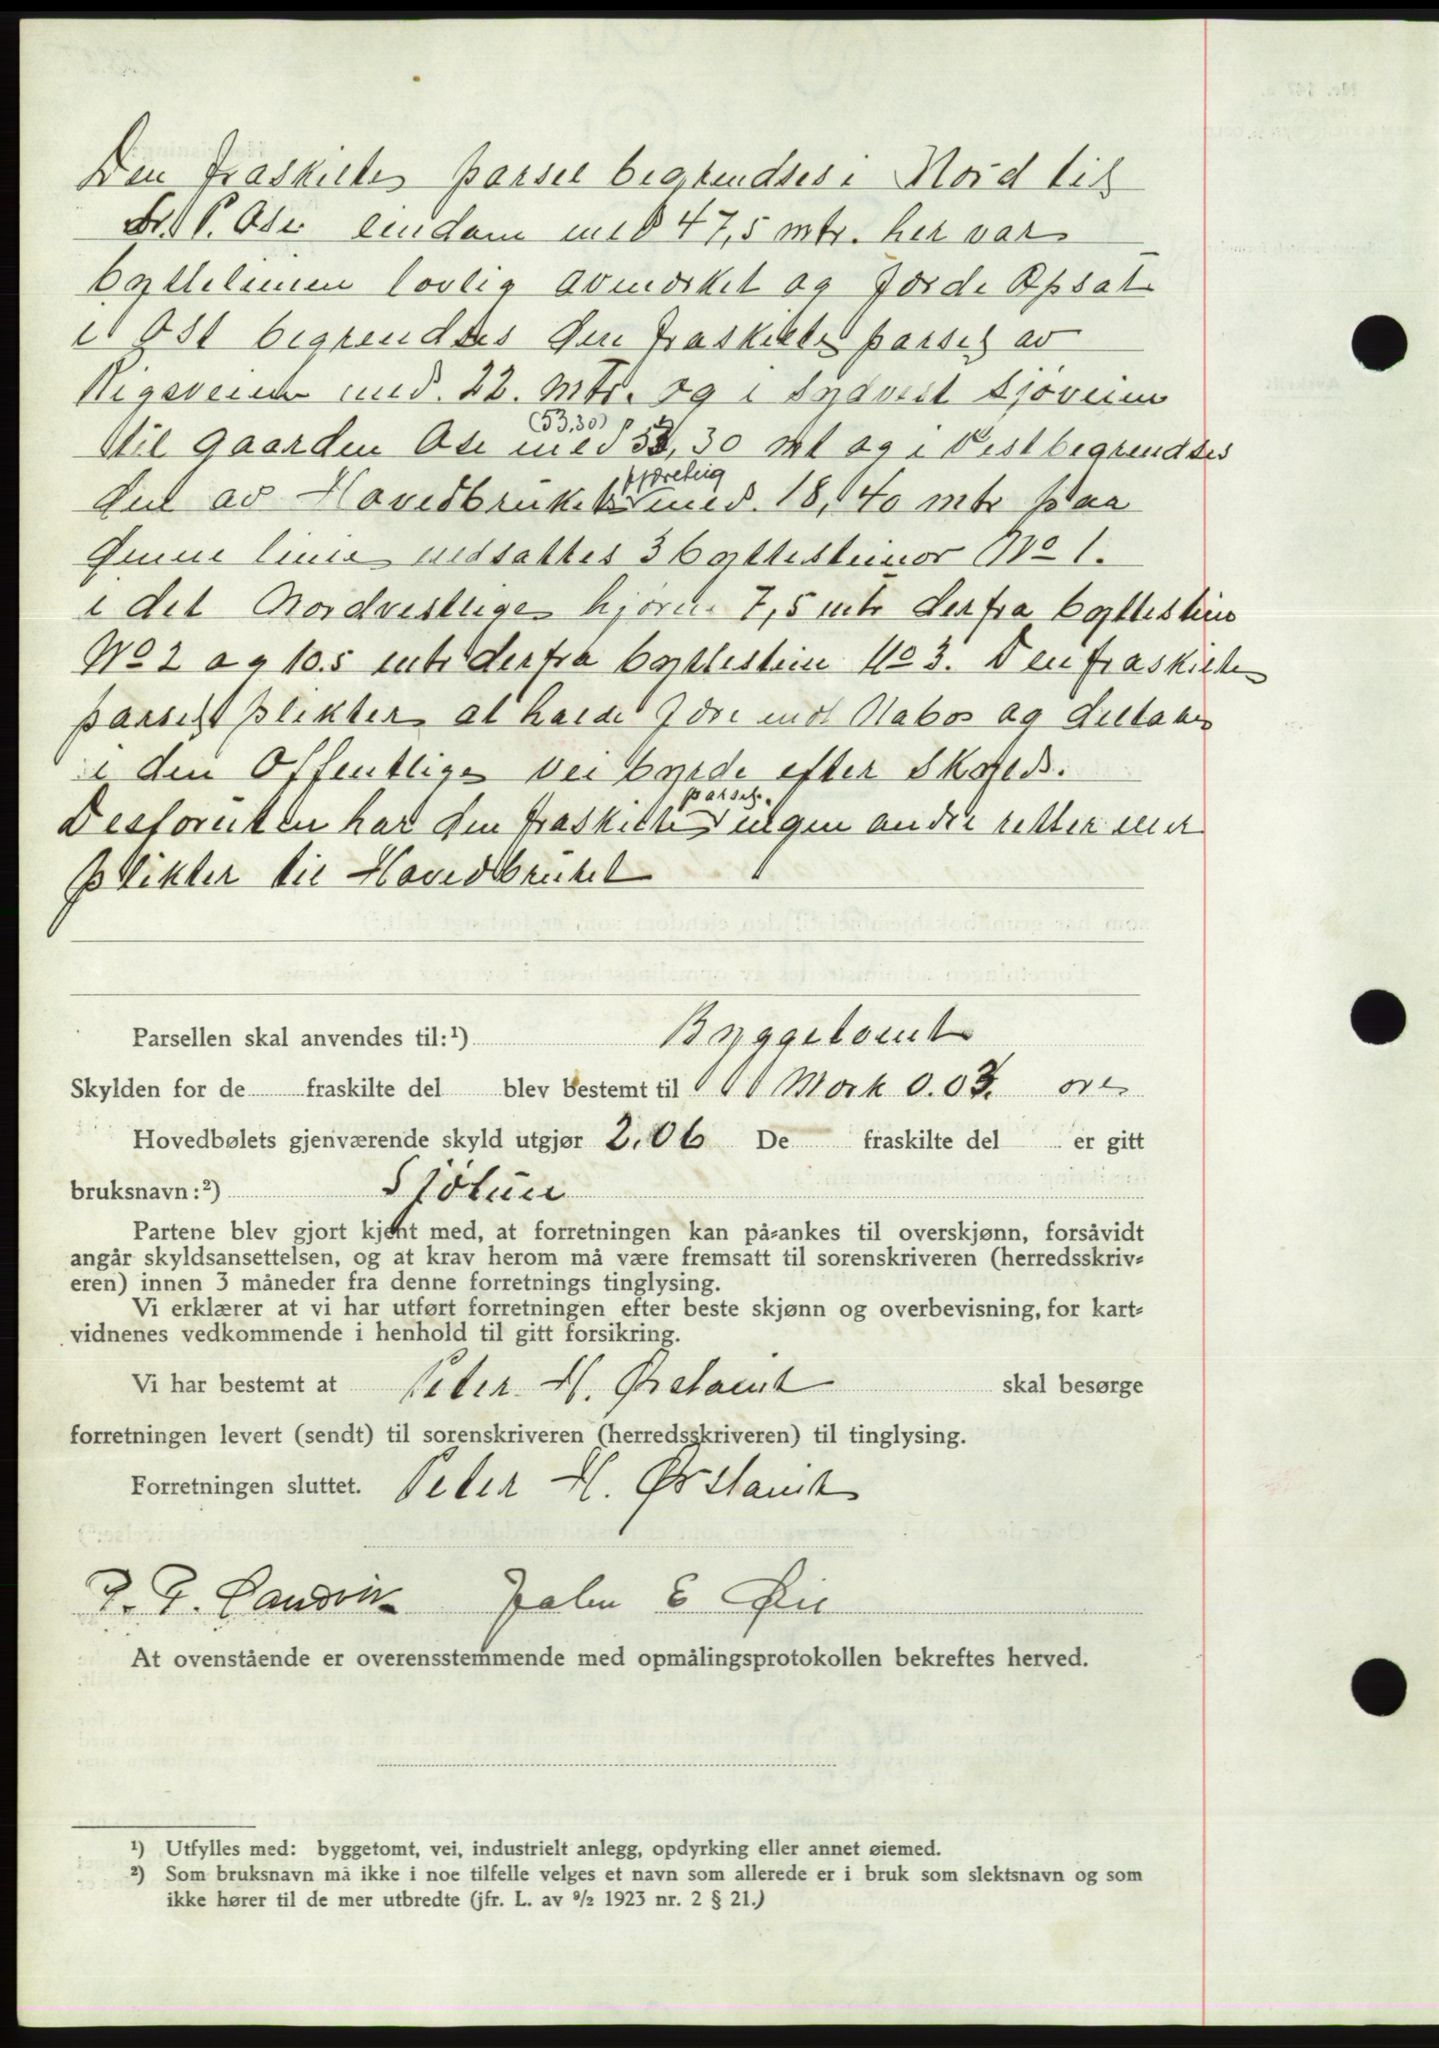 Den fraskilte parsel begrendses i Nord til
P. Ose eiendom med 47,5 mtr. her var
byttelinien lovlig avmerket og Jorde Opsat
i Øst begrendses den fraskilte parsel av
Rigsveien med 22. mtr. og i sydvest Sjøveien
(53,30)
til gaarden Ose med 53,30 mt og i Vest begrendses
den av Hovedbruket med 18,40 mtr paa
denne linie nedsattes 3 byttesteinor No 1.
i det Nordvestlige hjørne 7,5 mtr derfra byttestein
No 2 og 10.5 mtr derfra byttestein No 3. Den fraskilte
parsel plikter at holde Jære mot Nabo og deltake
i den Offentlige vei byrde efter Skyld.
parsel
Desforuten har den fraskilte ingen andre retter eller
plikter til Hovedbruket
Parsellen skal anvendes til:¹) Byggetomt
Skylden for de fraskilte del blev bestemt til Mark 0.03. øre
Hovedbølets gjenværende skyld utgjør 2.06 De fraskilte del er gitt
bruksnavn:²) Sjøtun
Partene blev gjort kjent med, at forretningen kan på-ankes til overskjønn, forsåvidt
angår skyldsansettelsen, og at krav herom må være fremsatt til sorenskriveren (herredsskriv-
eren) innen 3 måneder fra denne forretnings tinglysing.
Vi erklærer at vi har utført forretningen efter beste skjønn og overbevisning, for kart-
vidnenes vedkommende i henhold til gitt forsikring.
Vi har bestemt at Peter H. Ørstavik skal besørge
forretningen levert (sendt) til sorenskriveren (herredsskriveren) til tinglysing.
Forretningen sluttet. Peter H. Ørstavik
P. P. Sandvik John E Øie
At ovenstående er overensstemmende med opmålingsprotokollen bekreftes herved.
¹) Utfylles med: byggetomt, vei, industrielt anlegg, opdyrking eller annet øiemed.
²) Som bruksnavn må ikke i noe tilfelle velges et navn som allerede er i bruk som slektsnavn og som
ikke hører til de mer utbredte (jfr. L. av ⁹/₂ 1923 nr. 2 § 21.)